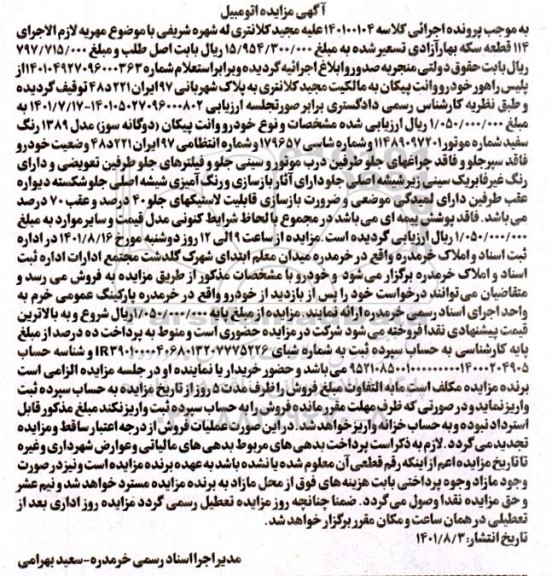 آگهی مزایده اتومبیل
به موجب پرونده اجرائی کلاسه ۱۴۰۱۰۰۱۰۴ علیه مجید کلانتری له شهره شریفی با موضوع مهریه لازم الاجرای
۱۱۴ قطعه سکه بهار آزادی تسعیر شده به مبلغ ۱۵/۹۵۴/۳۰۰/۰۰۰ ریال بابت اصل طلب و مبلغ ۷۹۷/۷۱۵/۰۰۰
ریال بابت حقوق دولتی منجر به صدور و ابلاغ اجرائیه گردیده و برابر استعلام شماره ۱۴۰۱۰۴۹۲۷۰۹۶۰۰۰۳۶۳ از
پلیس راهور خودرو وانت پیکان به مالکیت مجید کلانتری به پلاک شهربانی ۹۷ ایران ۲۲۱د۴۸ توقیف گردیده
و طبق نظریه کارشناس رسمی دادگستری برابر صورتجلسه ارزیابی ۱۴۰۱۰۵۰۲۷۰۹۶۰۰۰۸۰۲-۱۴۰۱/۷/۱۷ به
مبلغ ۱/۰۵۰/۰۰۰/۰۰۰ ریال ارزیابی شده مشخصات و نوع خودرو وانت پیکان (دوگانه سوز) مدل ۱۳۸۹ رنگ
سفید شماره موتور ۱۱۴۸۹۰۹۷۲۰۱ و شماره شاسی ۱۷۹۶۵۷ و شماره انتظامی ۹۷ ایران ۲۲۱د۴۸ وضعیت خودرو
فاقد سپر جلو و فاقد چراغهای جلو طرفین درب موتور و سینی جلو و فیلترهای جلو طرفین تعویضی و دارای
رنگ غیر فابریک سینی زیر شیشه اصلی جلو دارای آثار بازسازی و رنگ آمیزی شیشه اصلی جلو شکسته دیواره
عقب طرفین دارای لمیدگی موضعی و ضرورت بازسازی قابلیت لاستیکهای جلو ۴۰ درصد و عقب ۷۰ درصد
می باشد. فاقد پوشش بیمه ای می باشد در مجموع با لحاظ شرایط کنونی مدل قیمت و سایر موارد به مبلغ
۱/۰۵۰/۰۰۰/۰۰۰ ریال ارزیابی گردیده است. مزایده از ساعت ۹ الی ۱۲ روز دوشنبه مورخ ۱۴۰۱/۸/۱۶ در اداره
ثبت اسناد و املاک خرمدره واقع در خرمدره میدان معلم ابتدای شهرک گلدشت مجتمع ادارات اداره ثبت
اسناد و املاک خرمدره برگزار می شود و خودرو با مشخصات مذکور از طریق مزایده به فروش می رسد و
متقاضیان می توانند درخواست خود را پس از بازدید از خودرو واقع در خرمدره پارکینگ عمومی خرم به
واحد اجرای اسناد رسمی خرمدره ارائه نمایند. مزایده از مبلغ پایه ۱/۰۵۰/۰۰۰/۰۰۰ ریال شروع و به بالاترین
قیمت پیشنهادی نقدا فروخته می شود شرکت در مزایده حضوری است و منوط به پرداخت ده درصد از مبلغ
پایه کارشناسی به حساب سپرده ثبت به شماره شبای و شناسه حساب
می باشد و حضور خریدار یا نماینده او در جلسه مزایده الزامی است
برنده مزایده مکلف است مابه التفاوت مبلغ فروش را ظرف مدت ۵ روز از تاریخ مزایده به حساب سپرده ثبت
واریز نماید و در صورتی که ظرف مهلت مقرر مانده فروش را به حساب سپرده ثبت واریز نکند مبلغ مذکور قابل
استرداد نبوده و به حساب خزانه واریز خواهد شد. در این صورت عملیات فروش از درجه اعتبار ساقط و مزایده
تجدید می گردد. لازم به ذکر است پرداخت بدهی های مربوط بدهی های مالیاتی و عوارض شهرداری و غیره
تا تاریخ مزایده اعم از اینکه رقم قطعی آن معلوم شده یا نشده باشد به عهده برنده مزایده است و نیز در صورت
وجود مازاد وجوه پرداختی بابت هزینه های فوق از محل مازاد به برنده مزایده مسترد خواهد شد و نیم عشر
و حق مزایده نقدا وصول می گردد. ضمنا چنانچه روز مزایده تعطیل رسمی گردد مزایده روز اداری بعد از
تعطیلی در همان ساعت و مکان مقرر برگزار خواهد شد.
تاریخ انتشار: ۱۴۰۱/۸/۳
مدیر اجرا اسناد رسمی خرمدره-سعید بهرامی